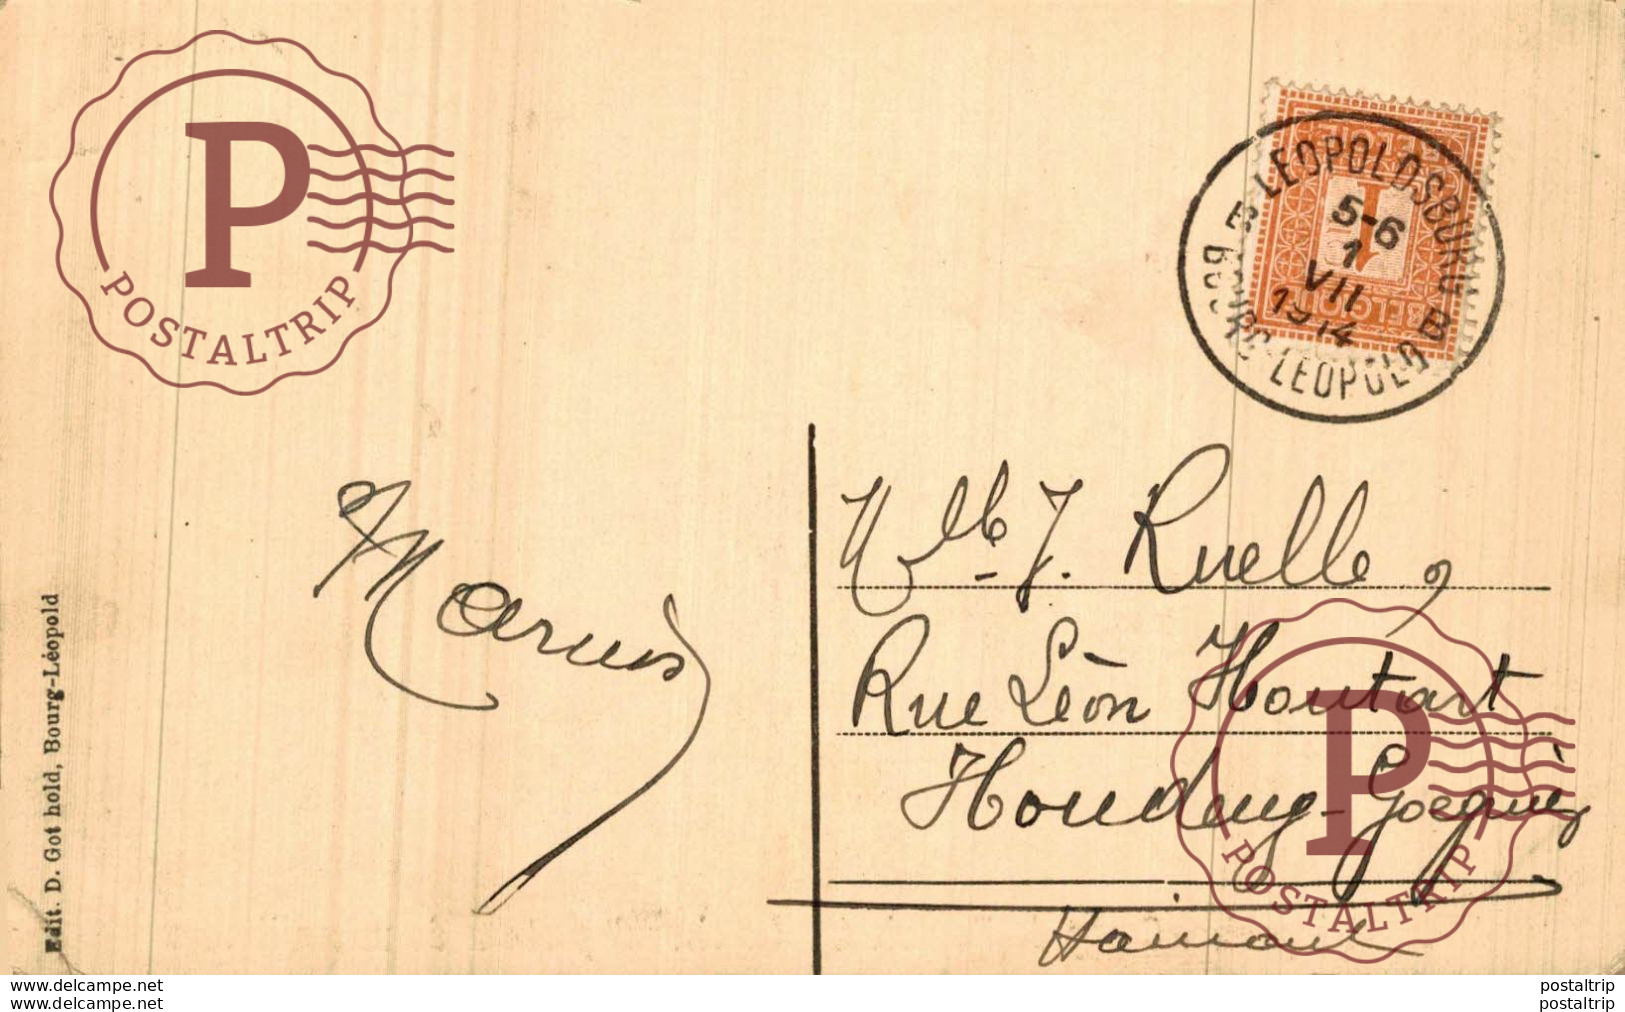 P
POSTALTRIP
LEOPOLDSBURG
B
5-6
1
VII
1914
BOURG-LEOPOLD
B
1
BELGIQUE
BELGIË
Marius
Mlle J. Ruelle,
Rue Léon Houtart
Houdeng-Goegnies
Hainaut
Edit. D. Gothold, Bourg-Léopold
P
POSTALTRIP
www.delcampe.net
postaltrip
www.delcampe.net
postaltrip